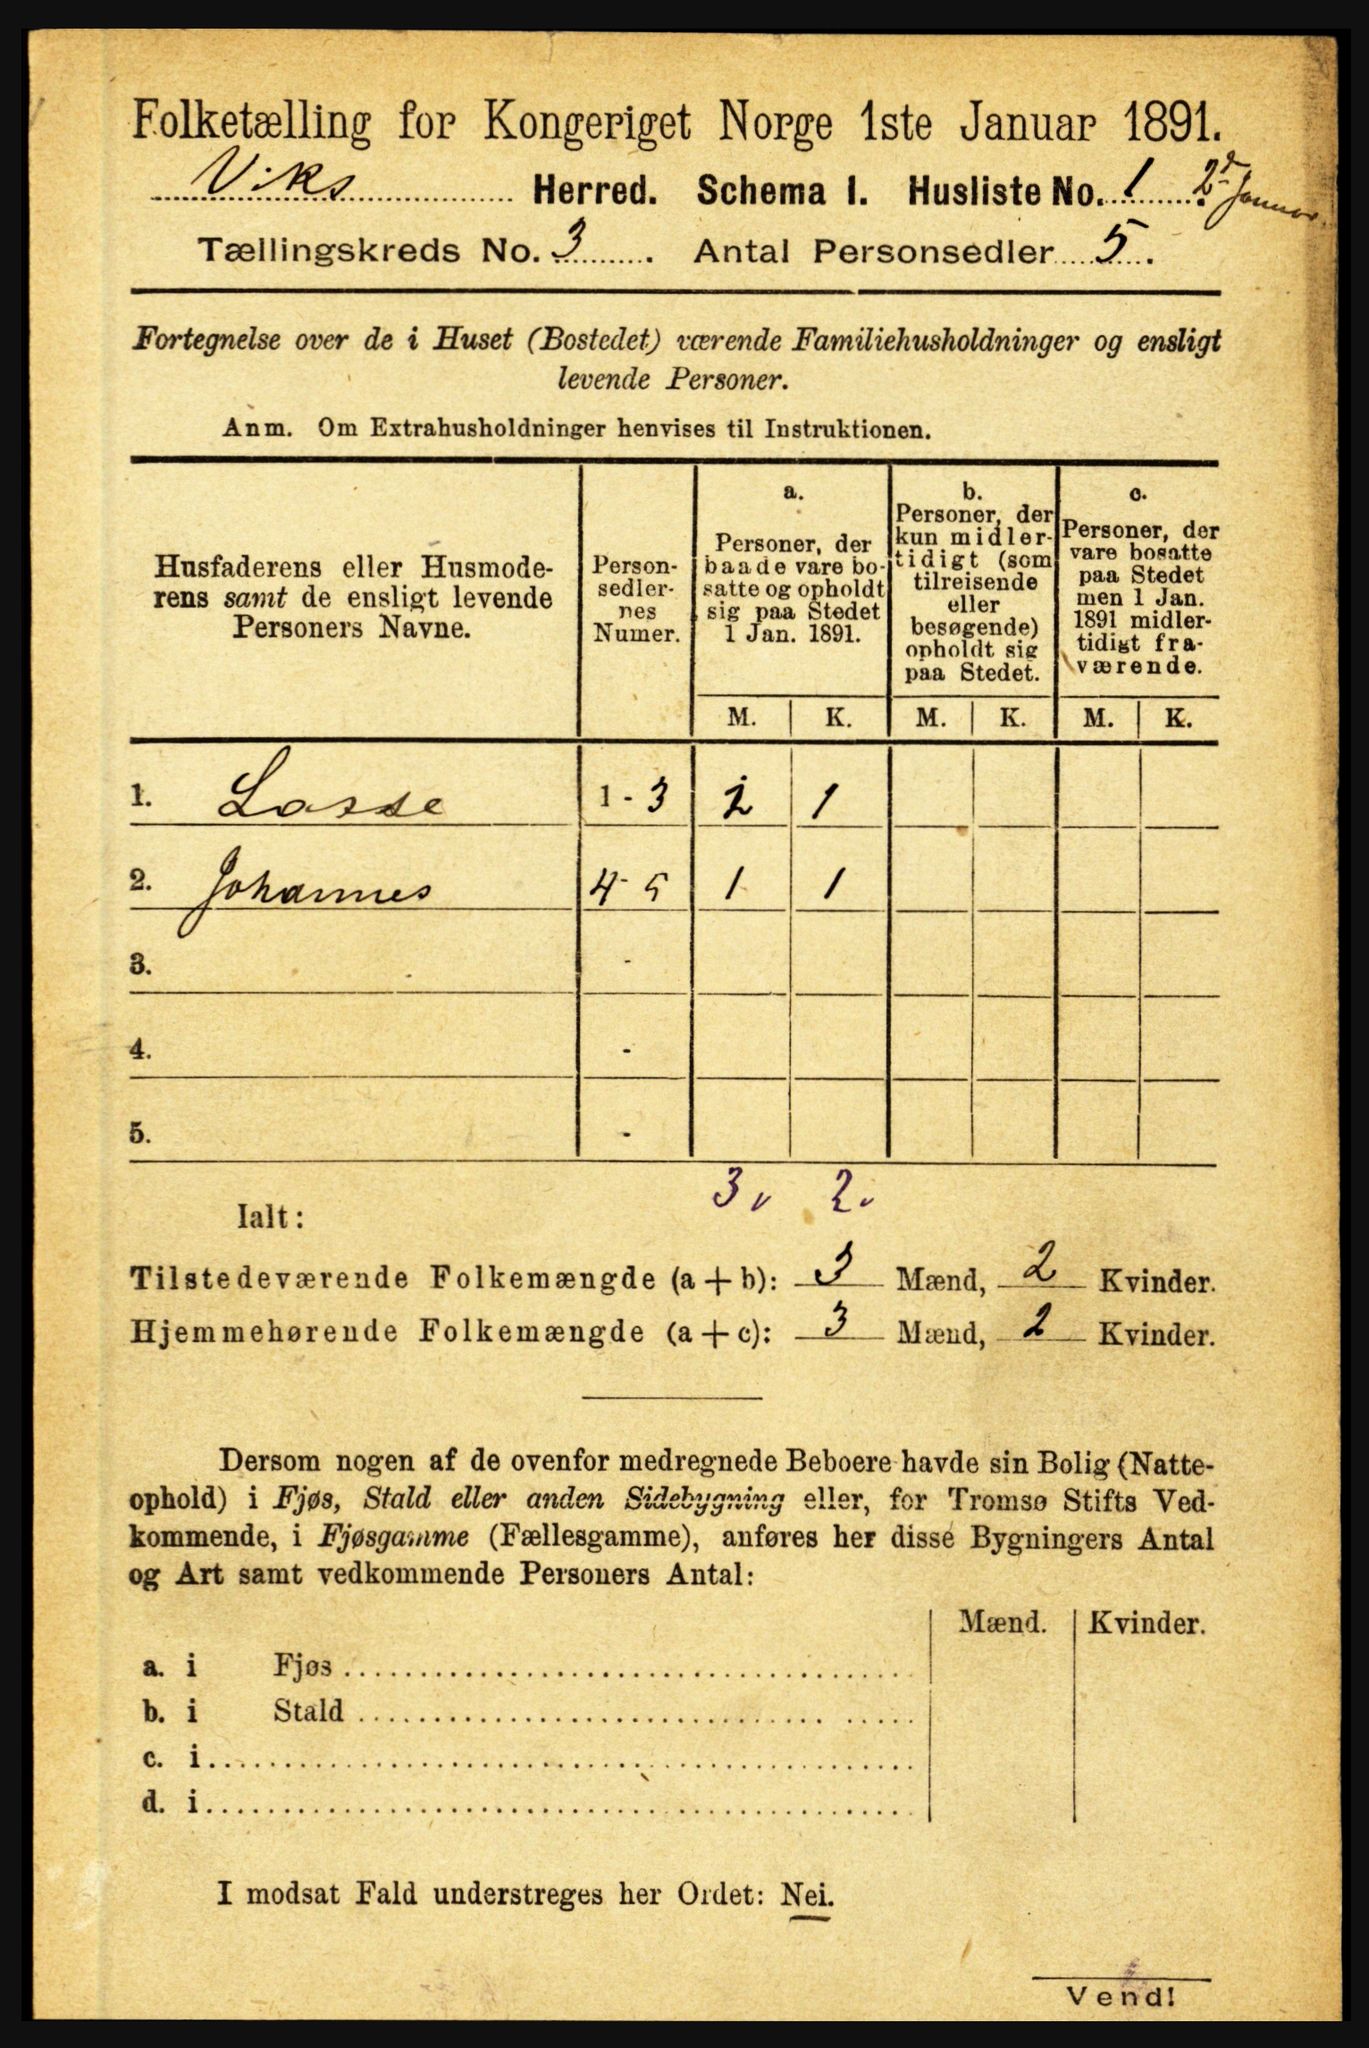 Folketælling for Kongeriget Norge 1ste Januar 1891.
Viks Herred. Schema I. Husliste No. 1 2d Januar.
Tællingskreds No. 3. Antal Personsedler 5.
Fortegnelse over de i Huset (Bostedet) værende Familiehusholdninger og ensligt
levende Personer.
Anm. Om Extrahusholdninger henvises til Instruktionen.
Husfaderens eller Husmode-
rens samt de ensligt levende
Personers Navne.
Person-
sedler-
nes
Numer.
a.
Personer, der
baade vare bo-
satte og opholdt
sig paa Stedet
1 Jan. 1891.
b.
Personer, der
kun midler-
tidigt (som
tilreisende
eller
besøgende)
opholdt sig
paa Stedet.
c.
Personer, der
vare bosatte
paa Stedet
men 1 Jan.
1891 midler-
tidigt fra-
værende.
M. K. M. K. M. K.
1. Lasse 1 - 3 2 1
2. Johannes 4 - 5 1 1
3. -
4. -
5. -
3 2
Ialt:
Tilstedeværende Folkemængde (a + b): 3 Mænd, 2 Kvinder.
Hjemmehørende Folkemængde (a + c): 3 Mænd, 2 Kvinder.
Dersom nogen af de ovenfor medregnede Beboere havde sin Bolig (Natte-
ophold) i Fjøs, Stald eller anden Sidebygning eller, for Tromsø Stifts Ved-
kommende, i Fjøsgamme (Fællesgamme), anføres her disse Bygningers Antal
og Art samt vedkommende Personers Antal:
Mænd. Kvinder.
a. i Fjøs
b. i Stald
c. i
d. i
I modsat Fald understreges her Ordet: Nei.
Vend!